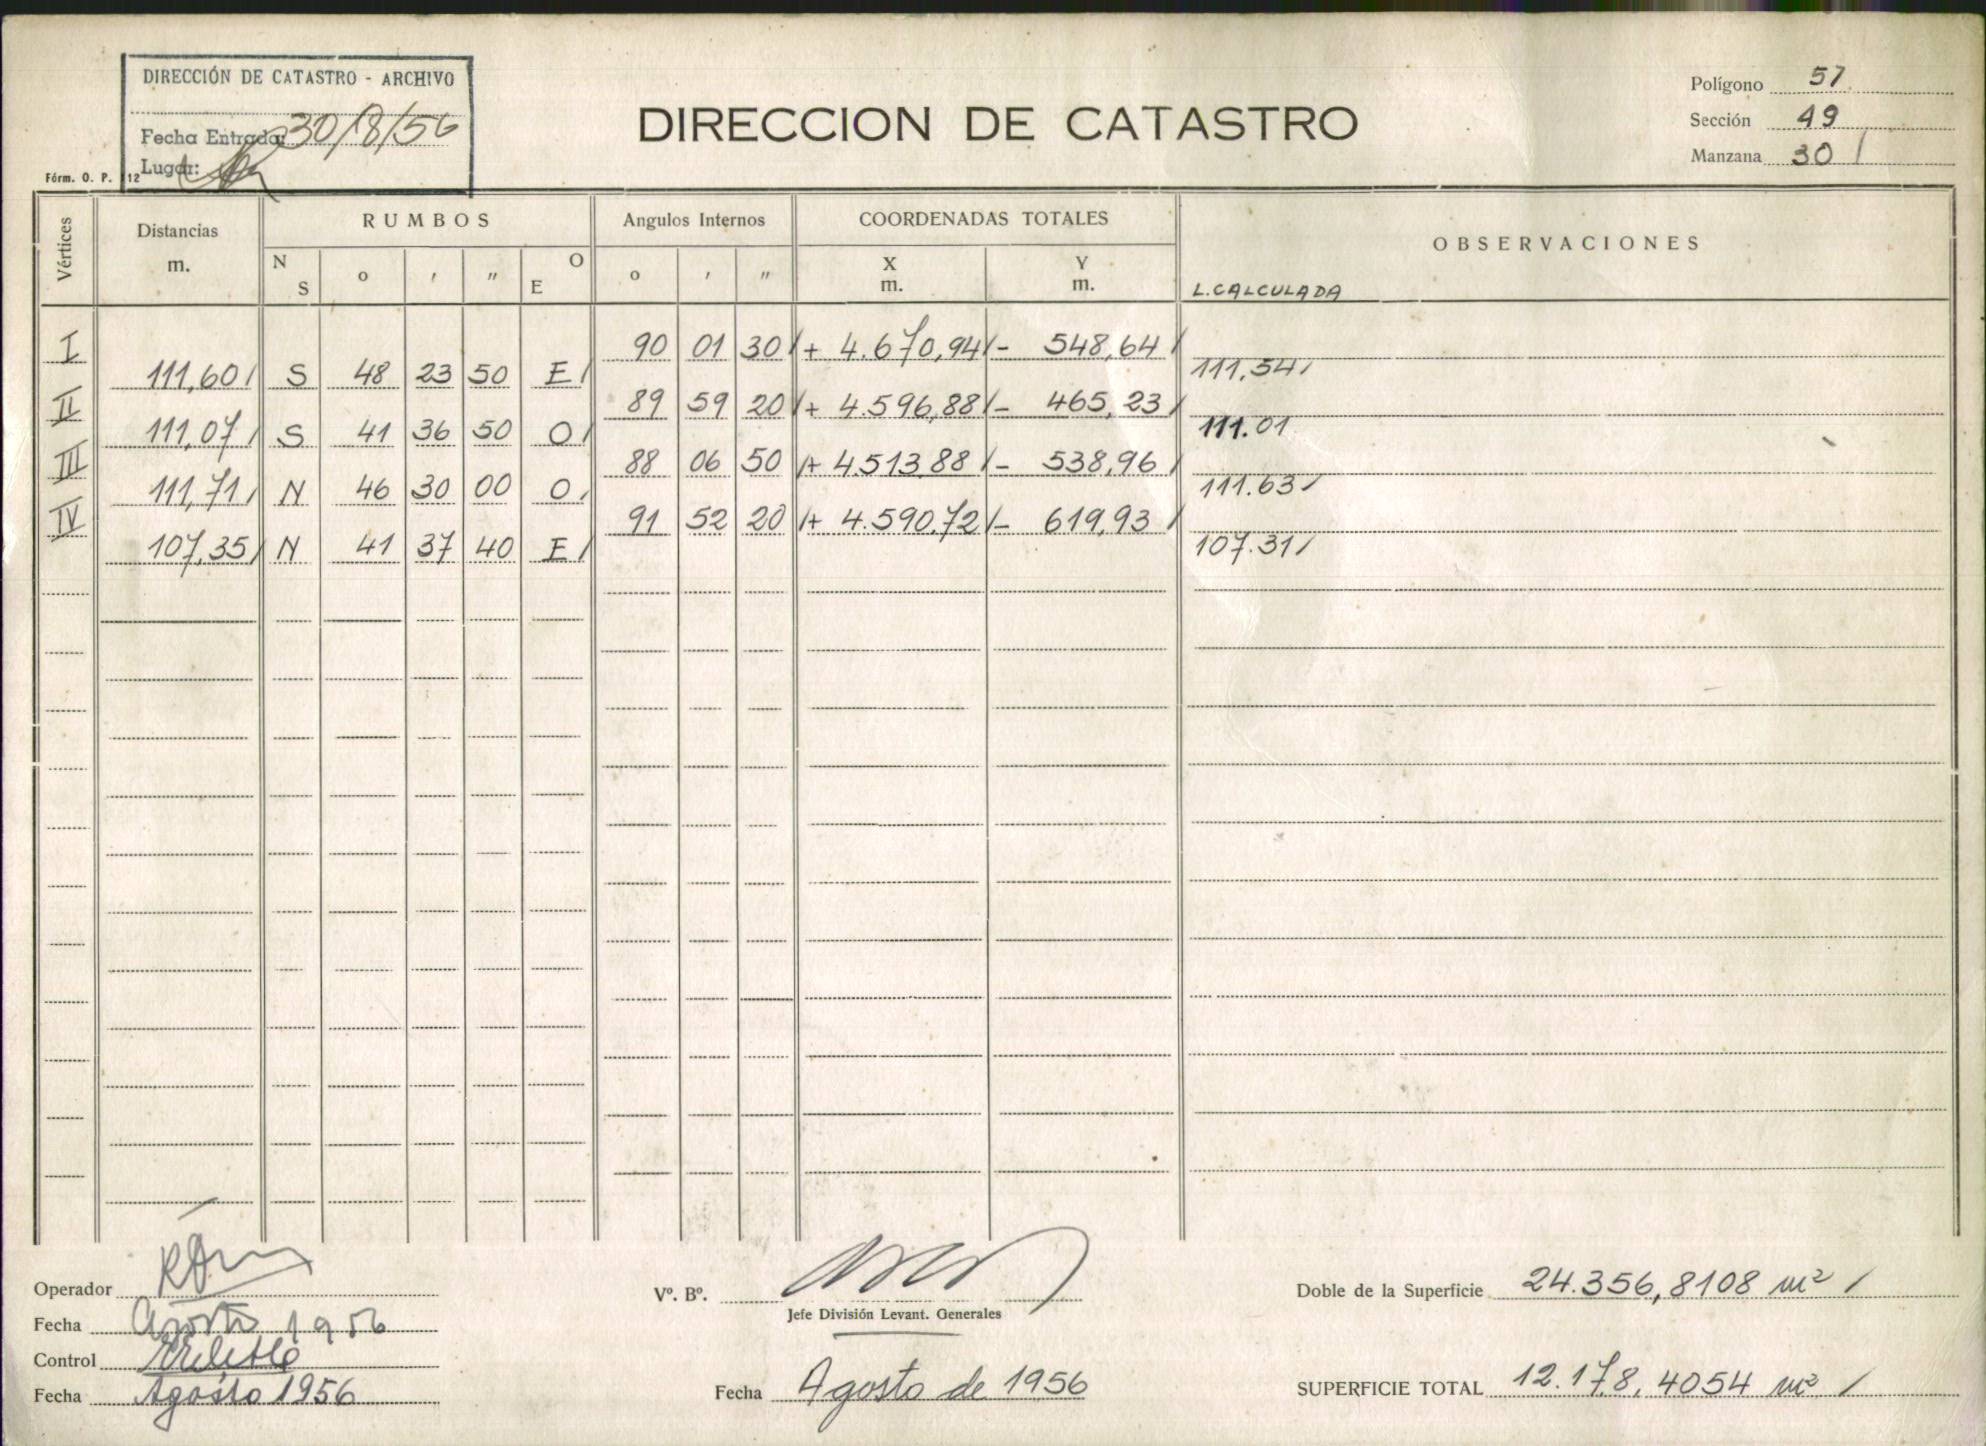 DIRECCIÓN DE CATASTRO - ARCHIVO
Fecha Entrada: 30/8/56
Lugar:
Fórm. O. P. 112
DIRECCION DE CATASTRO
Polígono 57
Sección 49
Manzana 30 /
Vértices Distancias m. RUMBOS Angulos Internos COORDENADAS TOTALES OBSERVACIONES
N S ° ' " O E ° ' " X m. Y m. L. CALCULADA
I 90 01 30 / + 4.670,94 / - 548,64 /
111,60 / S 48 23 50 E / 111,54 /
II 89 59 20 / + 4.596,88 / - 465,23 /
111,07 / S 41 36 50 O / 111.01
III 88 06 50 / + 4.513,88 / - 538,96 /
111,71 / N 46 30 00 O / 111.63 /
IV 91 52 20 / + 4.590,72 / - 619,93 /
107,35 / N 41 37 40 E / 107.31 /
Operador
Fecha Agosto 1956
Control
Fecha Agosto 1956
Vº. Bº.
Jefe División Levant. Generales
Fecha Agosto de 1956
Doble de la Superficie 24.356,8108 m² /
SUPERFICIE TOTAL 12.178,4054 m² /